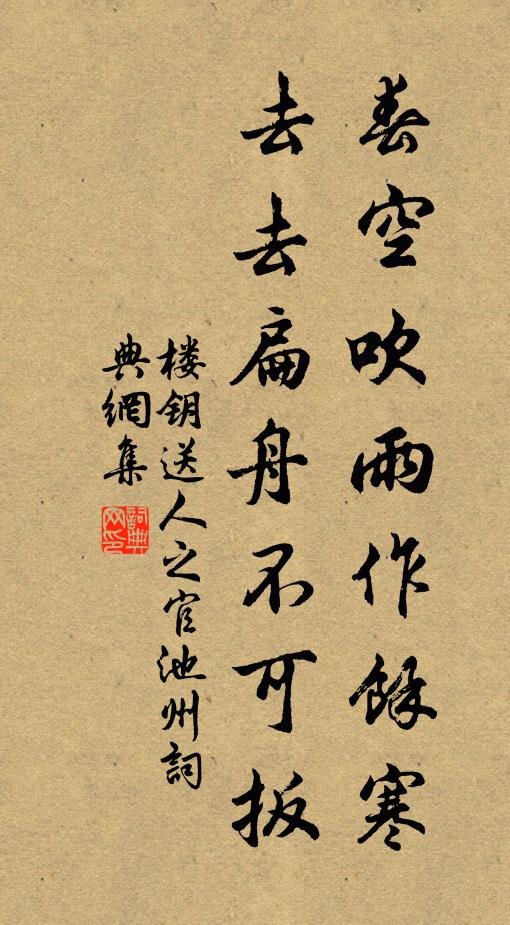 春空吹雨作餘寒
去去扁舟不可扳
楼钥送人之官池州詞
典網集
詞典网印